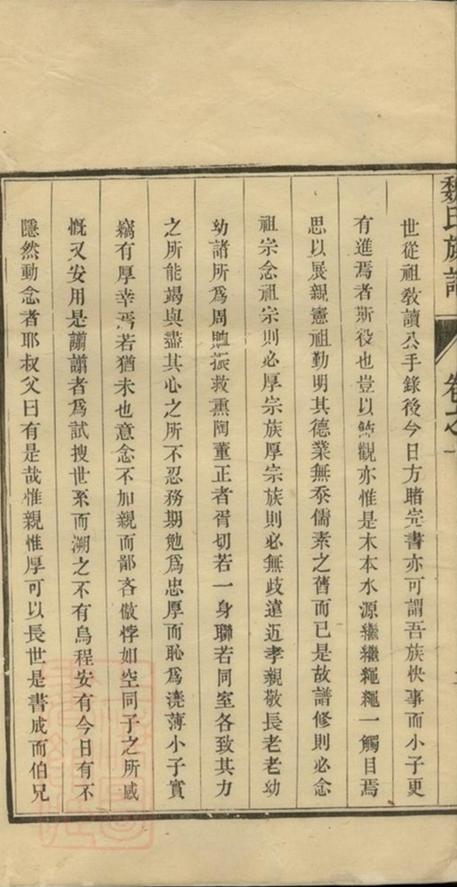 魏氏族譜
卷之一
世從祖教讀公手錄後今日方睹完書亦可謂吾族快事而小子更
有進焉者斯役也豈以飾觀亦惟是木本水源繼繼繩繩一觸目焉
思以展親憲祖勤明其德業無忝儒素之舊而已是故譜修則必念
祖宗念祖宗則必厚宗族厚宗族則必無歧遠近孝親敬長老老幼
幼諸所爲周賙振救熏陶董正者胥切若一身聯若同室各致其力
之所能竭與盡其心之所不忍務期勉爲忠厚而恥爲澆薄小子實
竊有厚幸焉若猶未也意念不加親而鄙吝傲悖如空同子之所感
慨又安用是譾譾者爲試搜世系而溯之不有烏程安有今日有不
隱然動念者耶叔父曰有是哉惟親惟厚可以長世是書成而伯兄